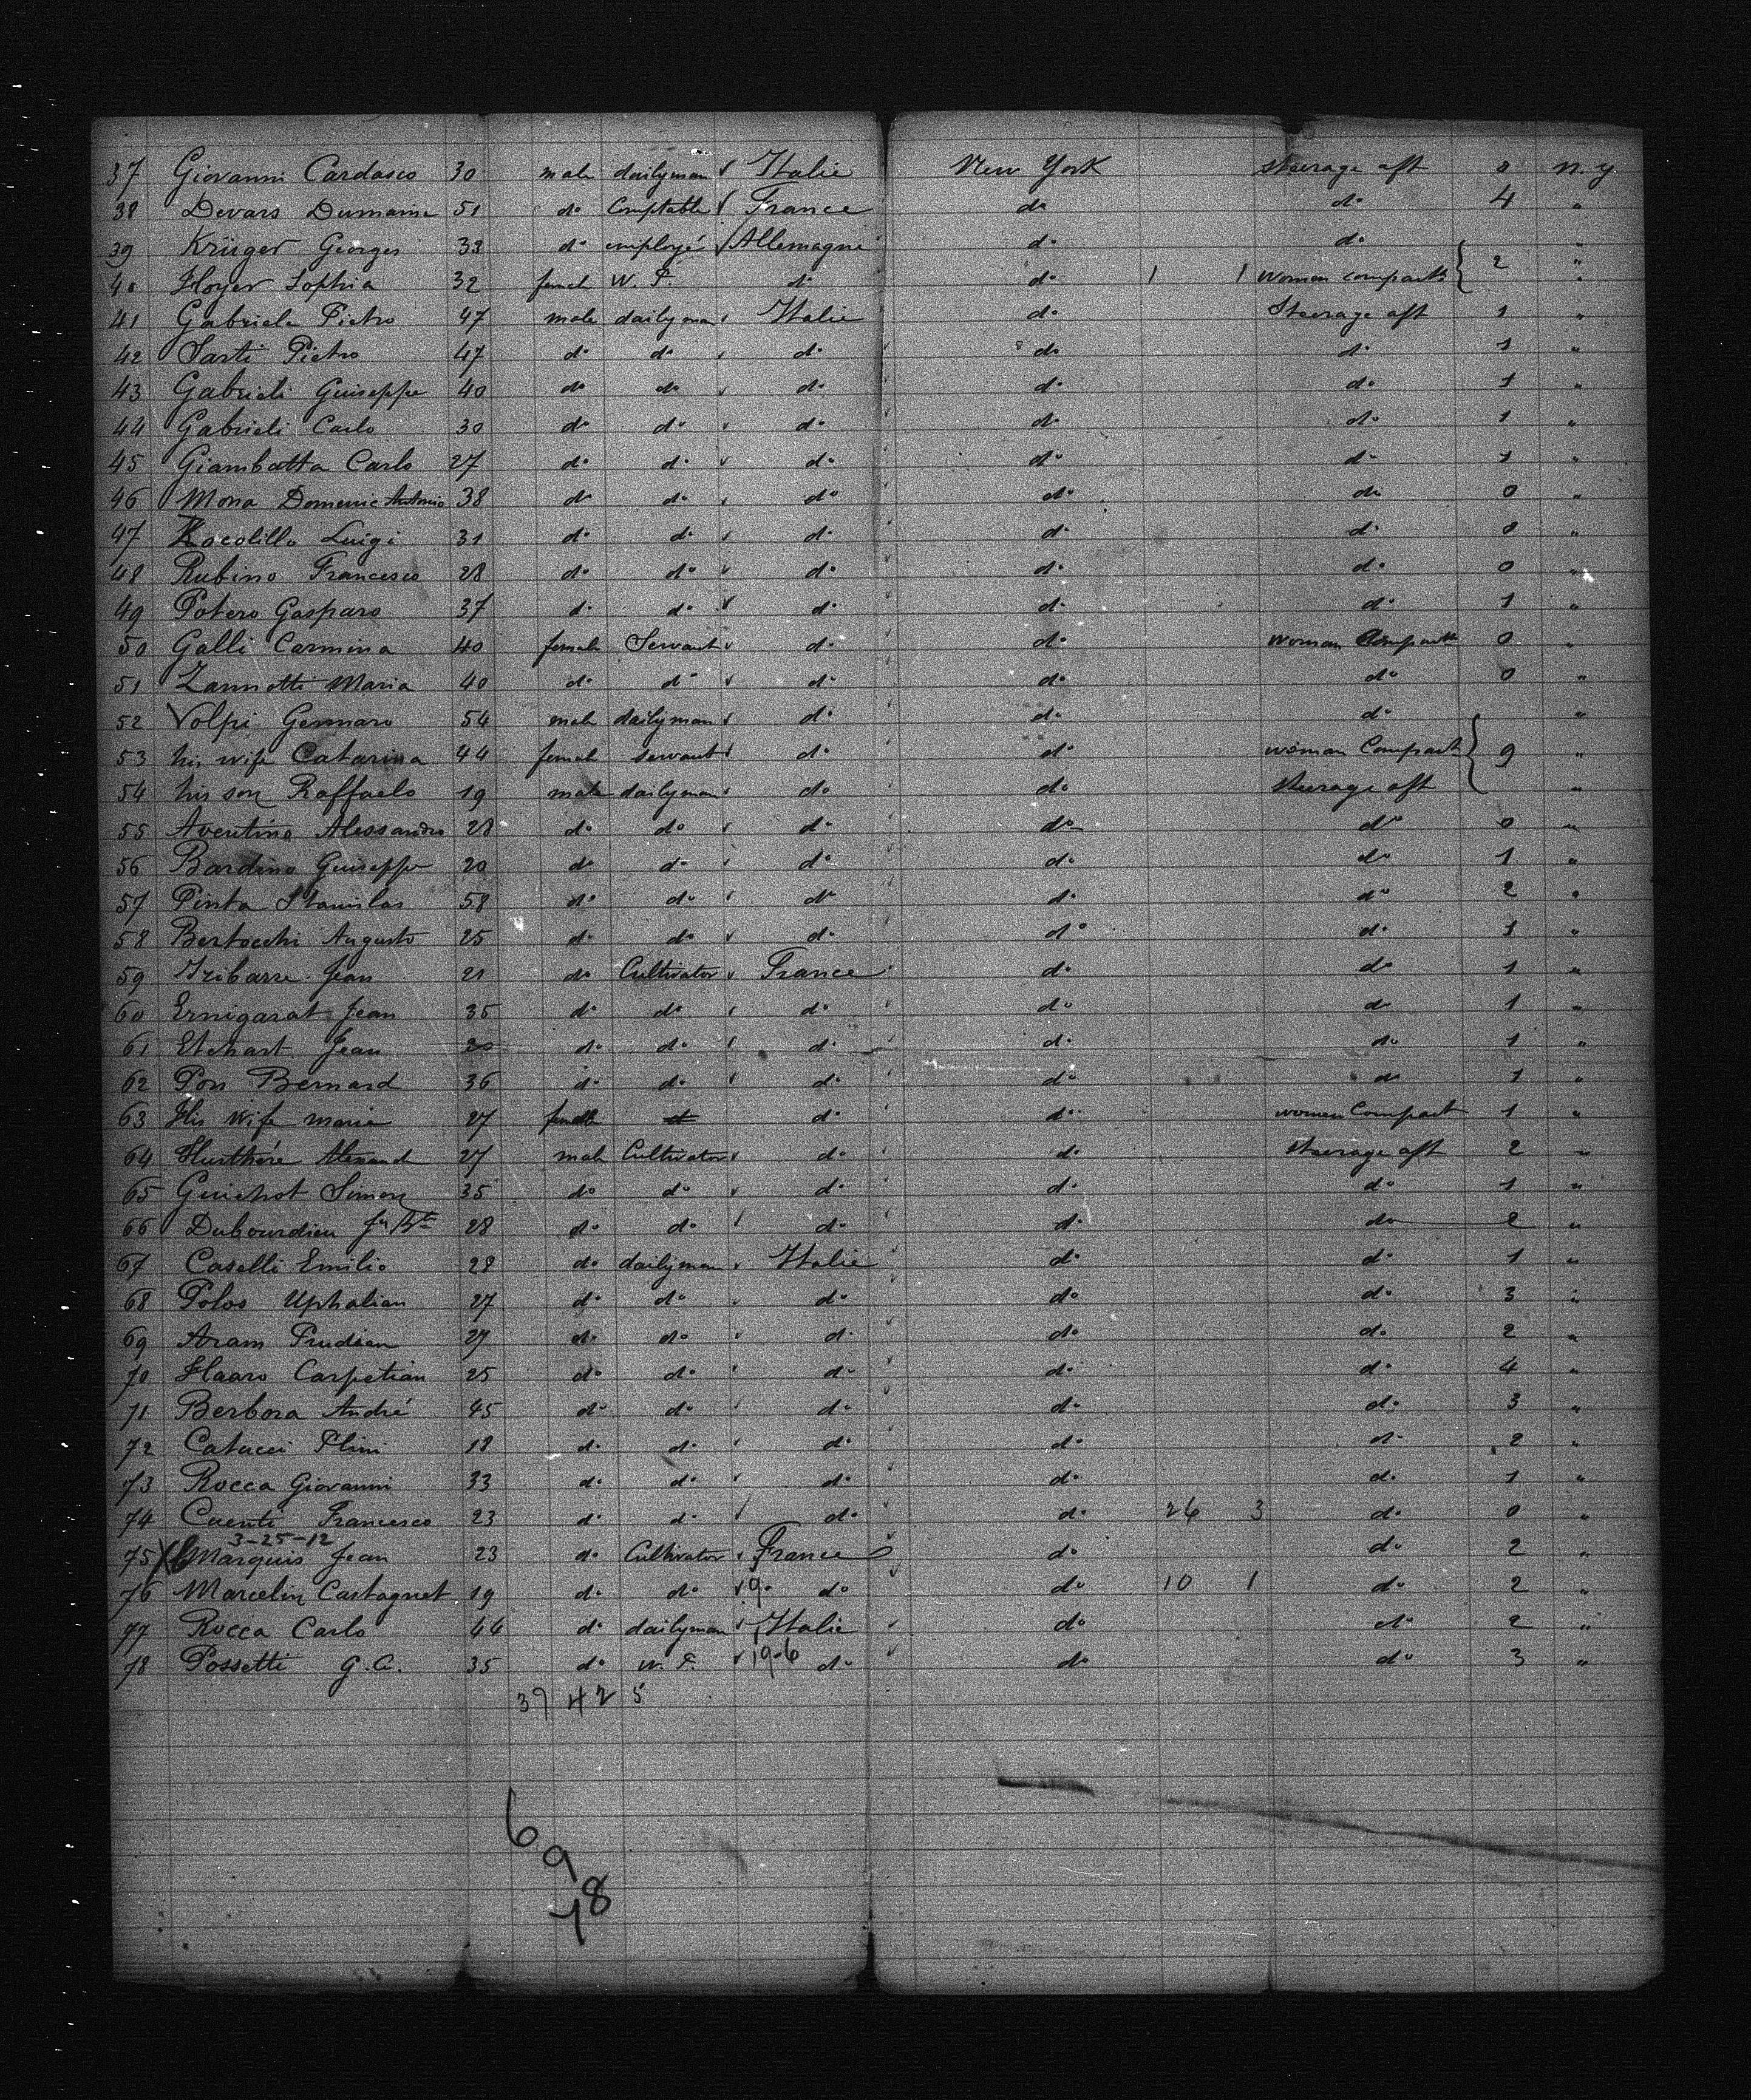 37 Giovanni Cardasco 30 male dailyman Italie New York steerage aft 0 n.y
38 Devars Dumaine 51 do Comptable France do do 4 "
39 Krüger Georges 33 do employé Allemagne do do "
40 Hoyer Sophia 32 female W. P. do do 1 1 woman compart 2 "
41 Gabriele Pietro 47 male dailyman Italie do Steerage aft 1 "
42 Sarti Pietro 47 do do do do do 1 "
43 Gabrieli Guiseppe 40 do do do do do 1 "
44 Gabrieli Carlo 30 do do do do do 1 "
45 Giambatta Carlo 27 do do do do do 1 "
46 Mona Domenic Antonio 38 do do do do do 0 "
47 Luigi 31 do do do do do 0 "
48 Rubino Francesco 28 do do do do do 0 "
49 Potero Gasparo 37 do do do do do 1 "
50 Galli Carmina 40 female Servant do do woman Compart 0 "
51 Zannotti Maria 40 do do do do do 0 "
52 Volpi Gennaro 54 male dailyman do do do "
53 his wife Catarina 44 female servant do do woman Compart 9 "
54 his son Raffaelo 19 male dailyman do do steerage aft "
55 Aventino Alessandro 28 do do do do do 0 "
56 Bardino Guiseppe 20 do do do do do 1 "
57 Pinta Stanislas 58 do do do do do 2 "
58 Bertocchi Augusto 25 do do do do do 1 "
59 Iribarre Jean 21 do Cultivator France do do 1 "
60 Ernigarat Jean 35 do do do do do 1 "
61 Etchart Jean 20 do do do do do 1 "
62 Pon Bernard 36 do do do do do 1 "
63 His wife marie 27 female do do do women Compart 1 "
64 27 male Cultivator do do steerage aft 2 "
65 Guichot Simon 35 do do do do do 1 "
66 Dubourdieu Jn Bte 28 do do do do do 2 "
67 Caselli Emilio 28 do dailyman Italie do do 1 "
68 Polos Uphalian 27 do do do do do 3 "
69 Aram Prudian 27 do do do do do 2 "
70 Haaro Carpetian 25 do do do do do 4 "
71 Berbora André 45 do do do do do 3 "
72 Catucci Plini 18 do do do do do 2 "
73 Rocca Giovanni 33 do do do do do 1 "
74 Cuenti Francesco 23 do do do do 26 3 do 0 "
3-25-12
75 X Marquis Jean 23 do Cultivator France do do 2 "
76 Marcelin Castagnet 19 do do 9 do do 10 1 do 2 "
77 Rocca Carlo 44 do dailyman Italie do do 2 "
78 Possetti G.C. 35 do W. P. 19-6 do do do 3 "
39 42 5
6
9
78